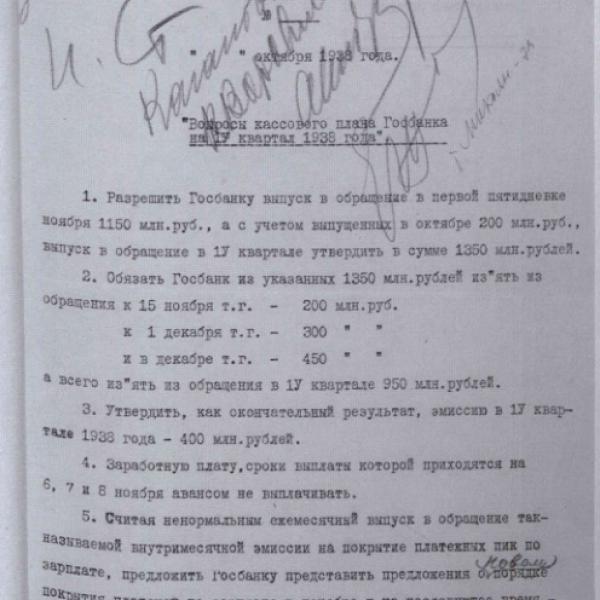 №
И. Ст
Каганов
К Ворошил
" " октября 1938 года.
"Вопросы кассового плана Госбанка
на 1У квартал 1938 года"
т. Микоян - за
1. Разрешить Госбанку выпуск в обращение в первой пятидневке
ноября 1150 млн.руб., а с учетом выпущенных в октябре 200 млн.руб.,
выпуск в обращение в 1У квартале утвердить в сумме 1350 млн.рублей.
2. Обязать Госбанк из указанных 1350 млн.рублей из"ять из
обращения к 15 ноября т.г. - 200 млн.руб.
к 1 декабря т.г. - 300 " "
и в декабре т.г. - 450 " "
а всего из"ять из обращения в 1У квартале 950 млн.рублей.
3. Утвердить, как окончательный результат, эмиссию в 1У квар-
тале 1938 года - 400 млн.рублей.
4. Заработную плату,сроки выплаты которой приходятся на
6, 7 и 8 ноября авансом не выплачивать.
5. Считая ненормальным ежемесячный выпуск в обращение так-
называемой внутримесячной эмиссии на покрытие платежных пик по
зарплате, предложить Госбанку представить предложения о новом порядке